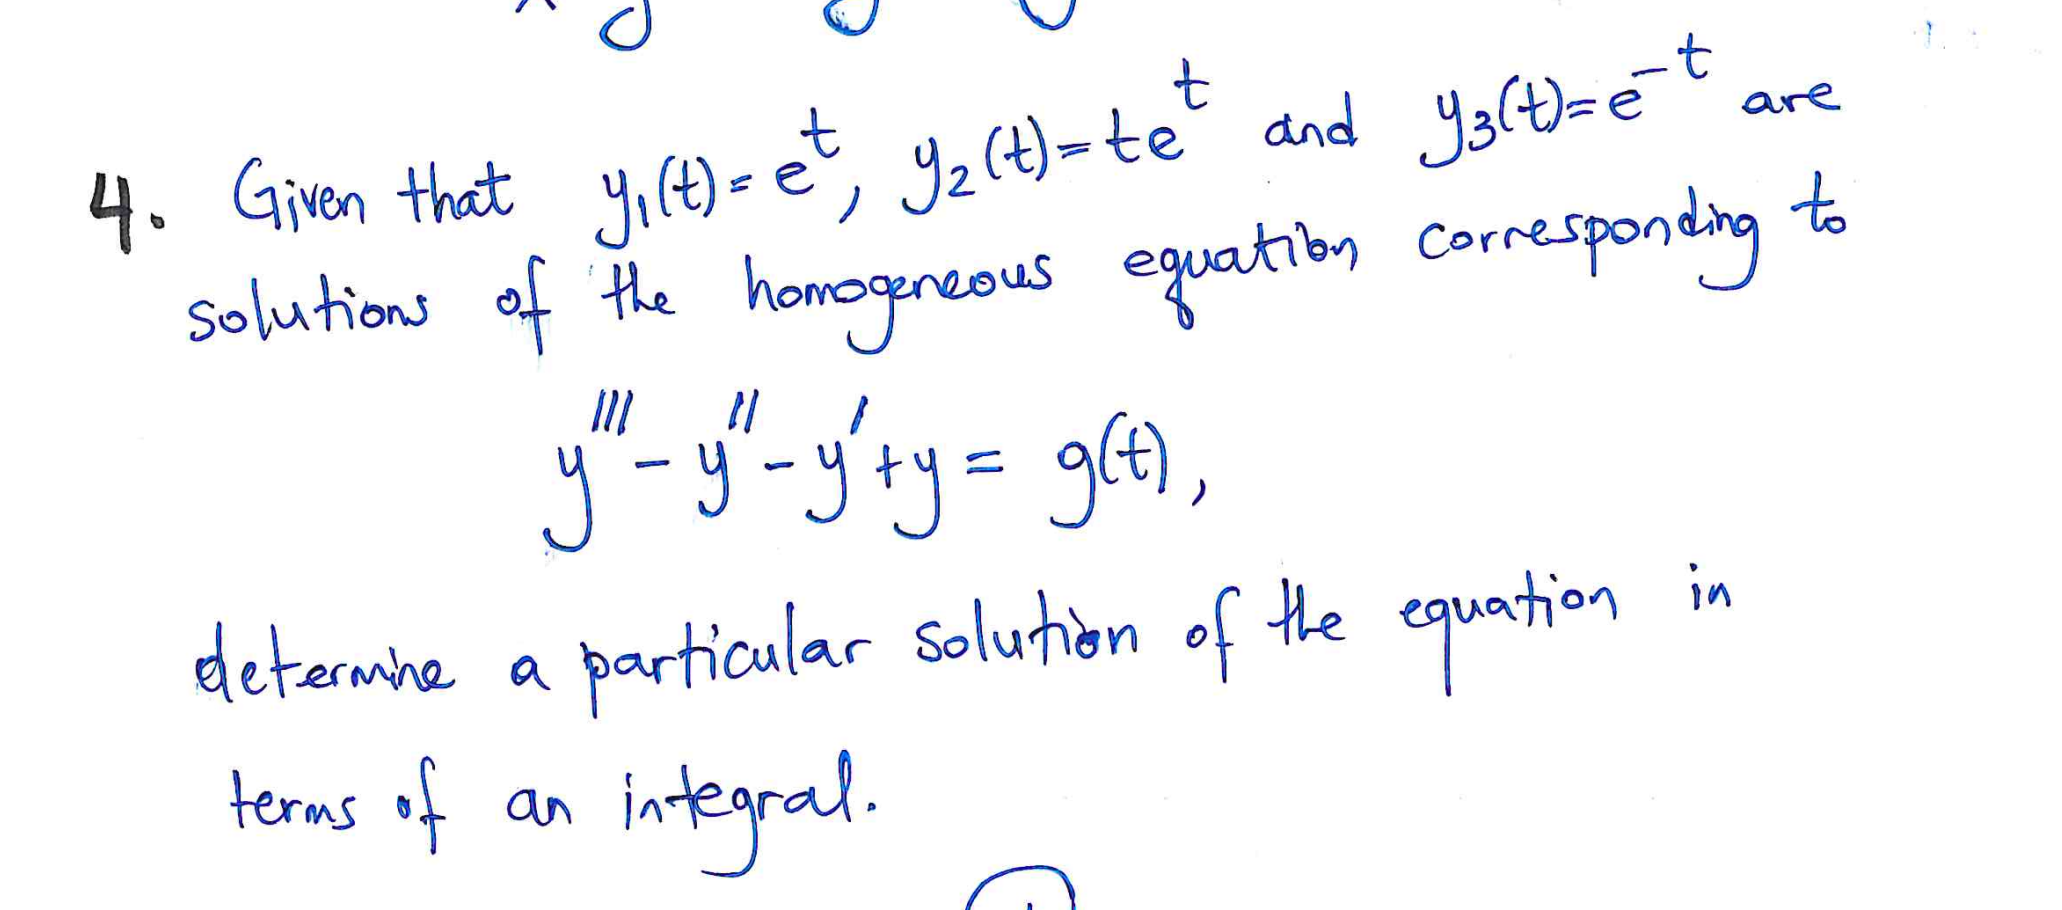 4. Given that y₁(t)=eᵗ, y₂(t)=teᵗ and y₃(t)=e⁻ᵗ are
solutions of the homogeneous equation corresponding to
y'''-y''-y'+y= g(t),
determine a particular solution of the equation in
terms of an integral.